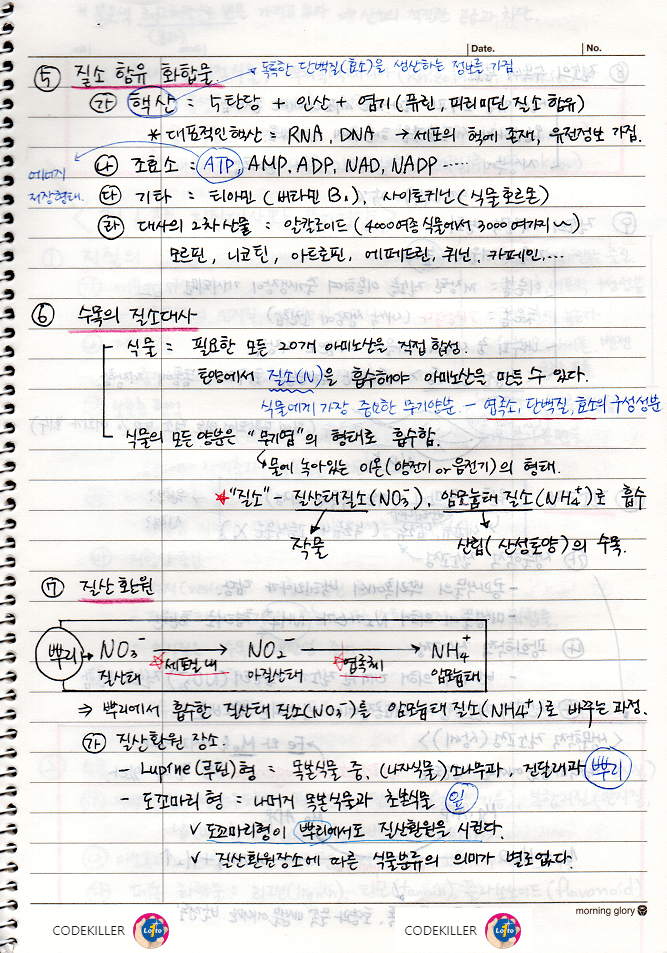 Date. No.
⑤ 질소 함유 화합물. * 독특한 단백질(효소)을 생산하는 정보를 가짐
㉮ 핵산 = 5탄당 + 인산 + 염기 (퓨린, 피리미딘 질소 함유)
* 대표적인 핵산 = RNA, DNA → 세포의 핵에 존재, 유전정보 가짐.
에너지 저장형태.
㉯ 조효소 = ATP, AMP, ADP, NAD, NADP .....
㉰ 기타 = 티아민 (비타민 B₁), 사이토키닌 (식물호르몬)
㉱ 대사의 2차산물 = 알칼로이드 (4000여종 식물에서 3000여가지~)
모르핀, 니코틴, 아트로핀, 에페드린, 퀴닌, 카페인,...
⑥ 수목의 질소대사
식물 = 필요한 모든 20개 아미노산을 직접 합성.
토양에서 질소(N)을 흡수해야 아미노산을 만들 수 있다.
식물에게 가장 중요한 무기양분. - 엽록소, 단백질, 효소의 구성성분
식물의 모든 양분은 "무기염"의 형태로 흡수함.
↳ 물에 녹아있는 이온(양전기 or 음전기)의 형태.
☆ "질소" - 질산태질소(NO₃⁻), 암모늄태 질소(NH₄⁺)로 흡수
작물 산림(산성토양)의 수목.
⑦ 질산 환원
뿌리 → NO₃⁻ → NO₂⁻ → NH₄⁺
☆ 세포질 내 ☆ 엽록체
질산태 아질산태 암모늄태
⇒ 뿌리에서 흡수한 질산태 질소(NO₃⁻)를 암모늄태 질소(NH4⁺)로 바꾸는 과정.
㉮ 질산환원 장소.
- Lupine(루핀)형 = 목본식물 중, (나자식물)소나무과, 진달래과 뿌리
- 도꼬마리형 = 나머지 목본식물과 초본식물 잎
✓ 도꼬마리형이 뿌리에서도 질산환원을 시킨다.
✓ 질산환원장소에 따른 식물분류의 의미가 별로없다.
morning glory
CODEKILLER Lotto CODEKILLER Lotto